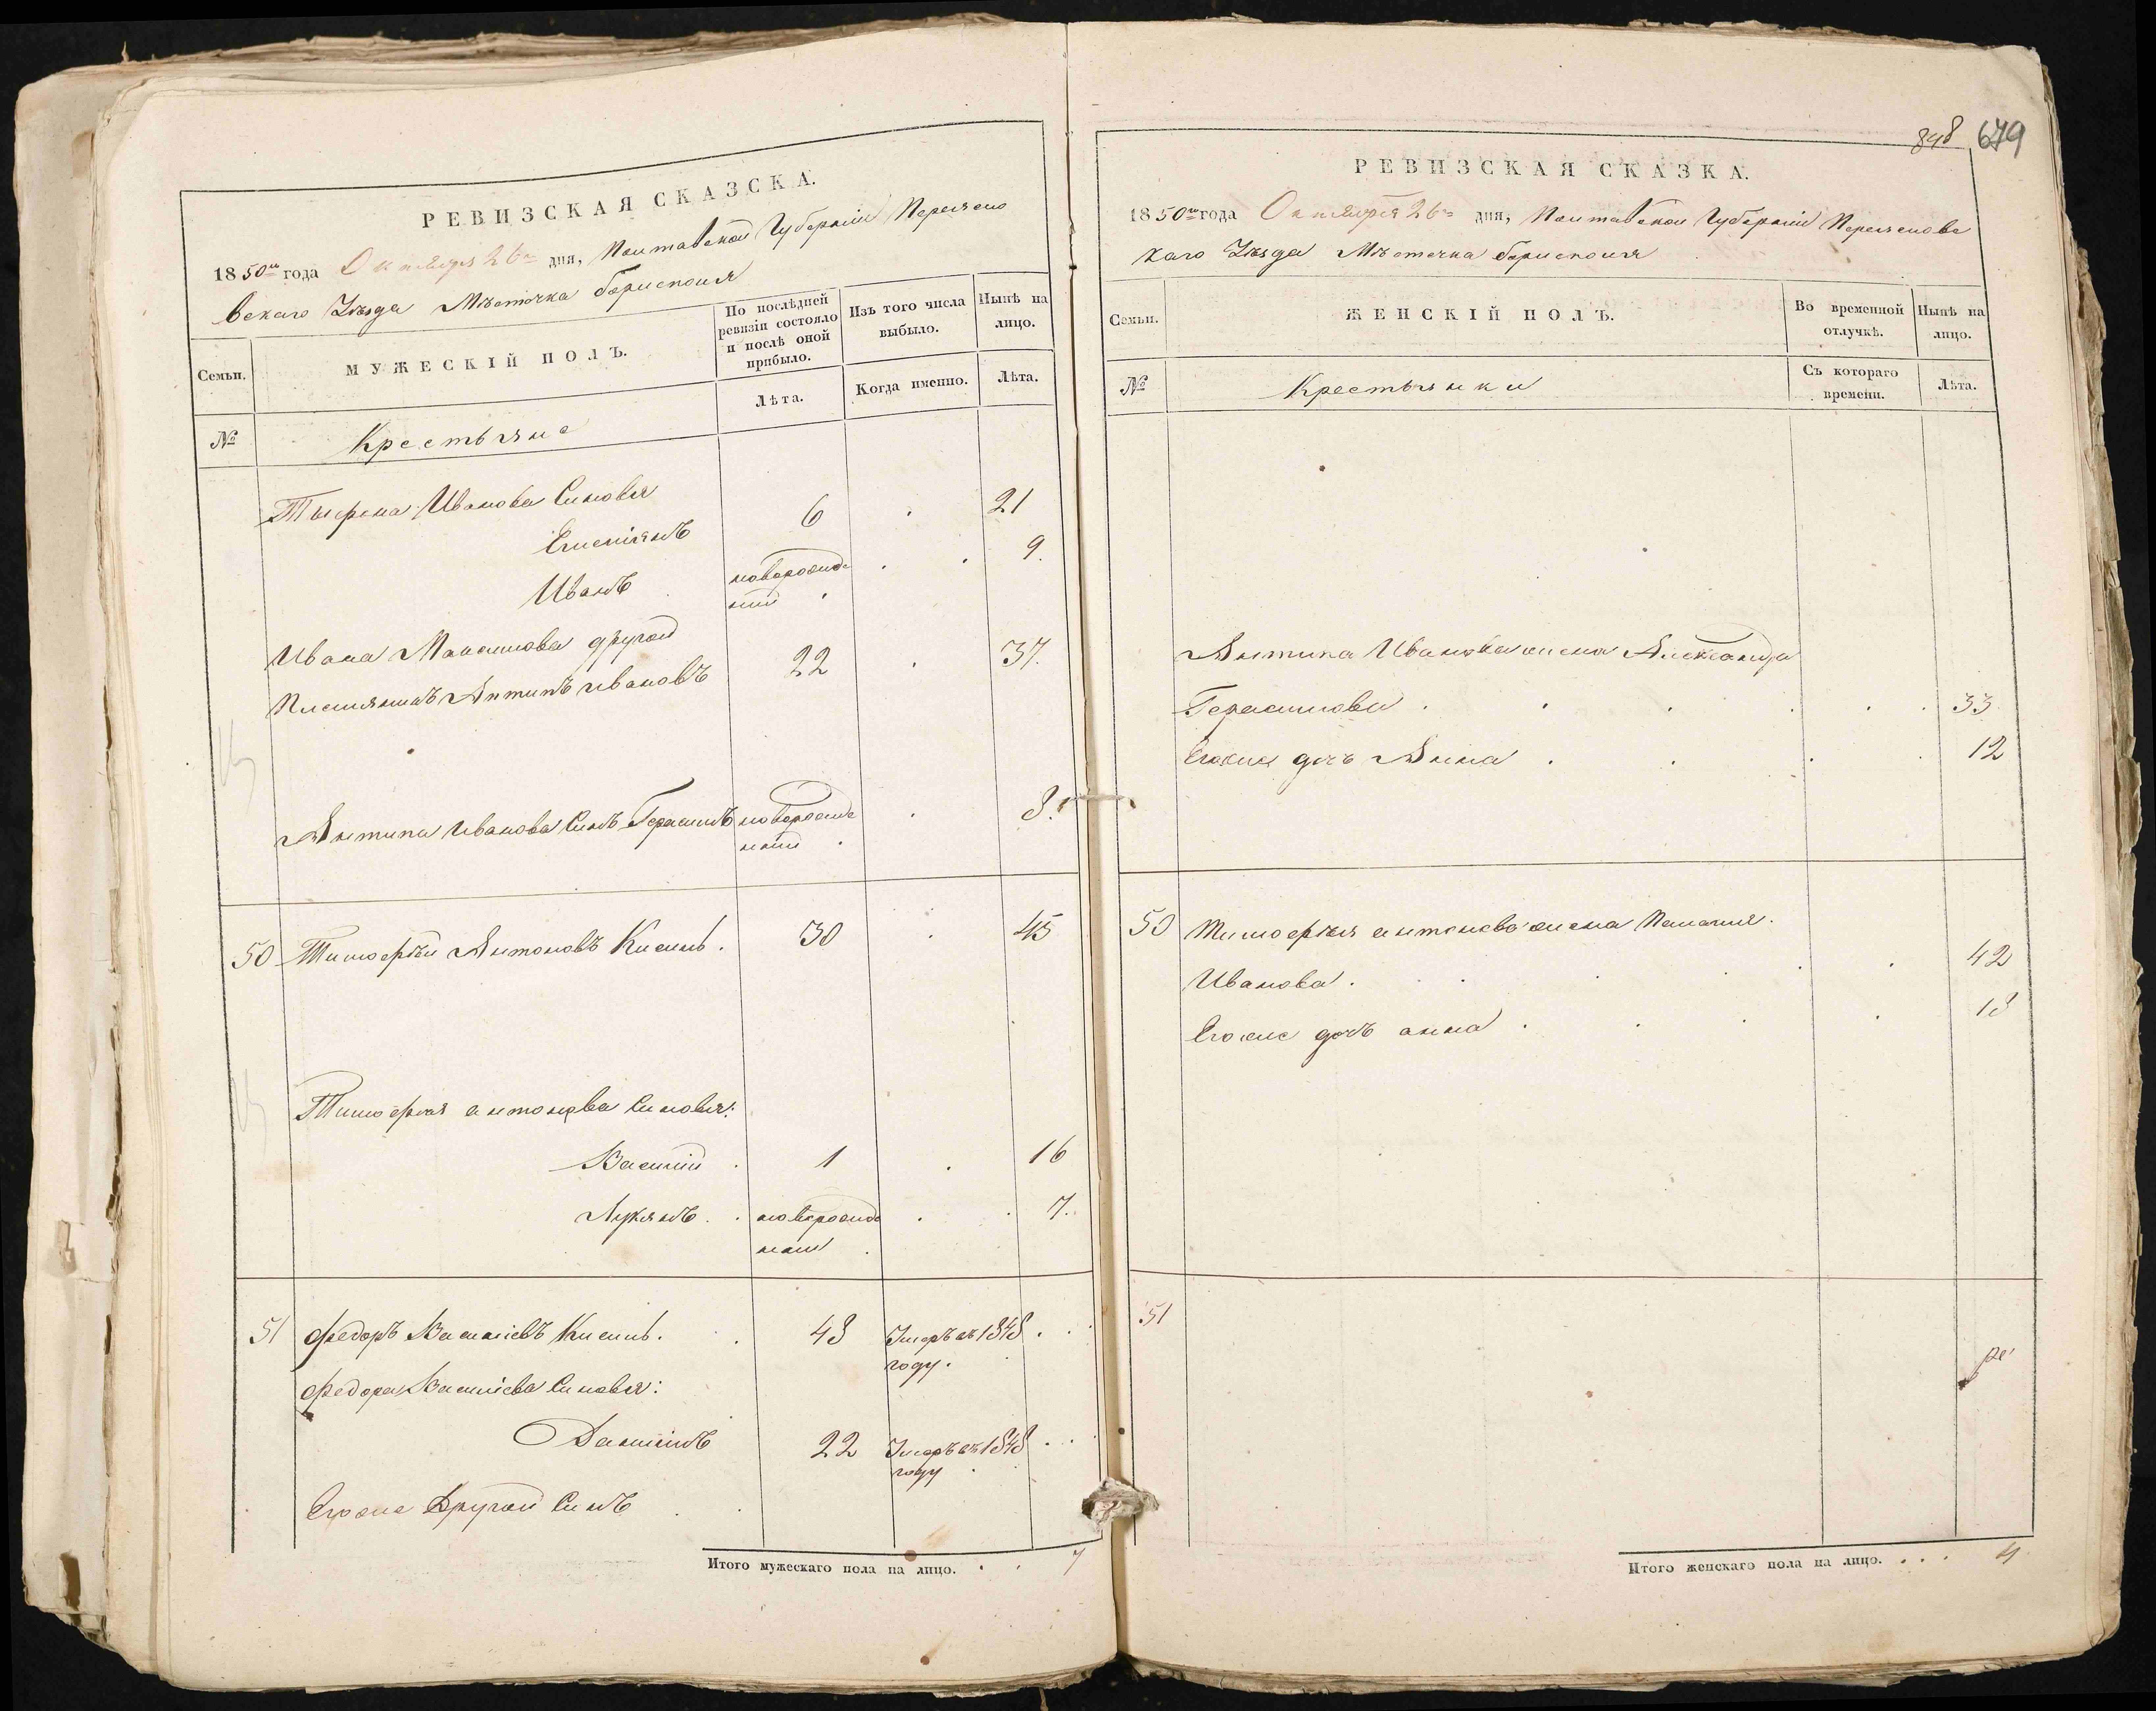 РЕВИЗСКАЯ СКАЗСКА.
1850го года Октября 26го дня, Полтавской Губерніи Переясло
вскаго Уѣзда Мѣстечка Борисполя
Семьи.
МУЖЕСКІЙ ПОЛЪ.
По послѣдней
ревизіи состояло
и послѣ оной
прибыло.
Изъ того числа
выбыло.
Нынѣ на
лицо.
№
Крестьяне
Лѣта.
Когда именно.
Лѣта.
Иванова Синовья
6 21
Иванъ новорожде 9.
ный
Ивана Максимова другой
Племяникъ Антипъ Ивановъ 22 37.
Антипа Иванова Синъ Герасимъ новорожде 8.
ный
50 Тимофѣй Антоновъ Кисиль. 30 45
Тимофѣя антонова Синовья:
Василій 1 16
Лукянъ новорожде 7.
ный
51 Федоръ Василіевъ Кисиль. 48 Умеръ въ 1848
году.
Федора Василіева Синовья:
Данііилъ 22 Умеръ въ 1848
году
Егоже Другой Синъ
Итого мужескаго пола на лицо. 7
848 679
РЕВИЗСКАЯ СКАЗКА.
1850го года Октября 26го дня, Полтавской Губерніи Переяславс
каго Уѣзда Мѣстечка Борисполя
Семьи.
ЖЕНСКІЙ ПОЛЪ.
Во временной
отлучкѣ.
Нынѣ на
лицо.
№
Крестьянки
Съ котораго
времени.
Лѣта.
Антипа Иванова жена Александра
Герасимова 33
Егоже дочь Анна 12
50 Тимофѣя антонова жена Пелагия
Иванова. 42
Егоже дочь анна 18
51
Итого женскаго пола на лицо. 4